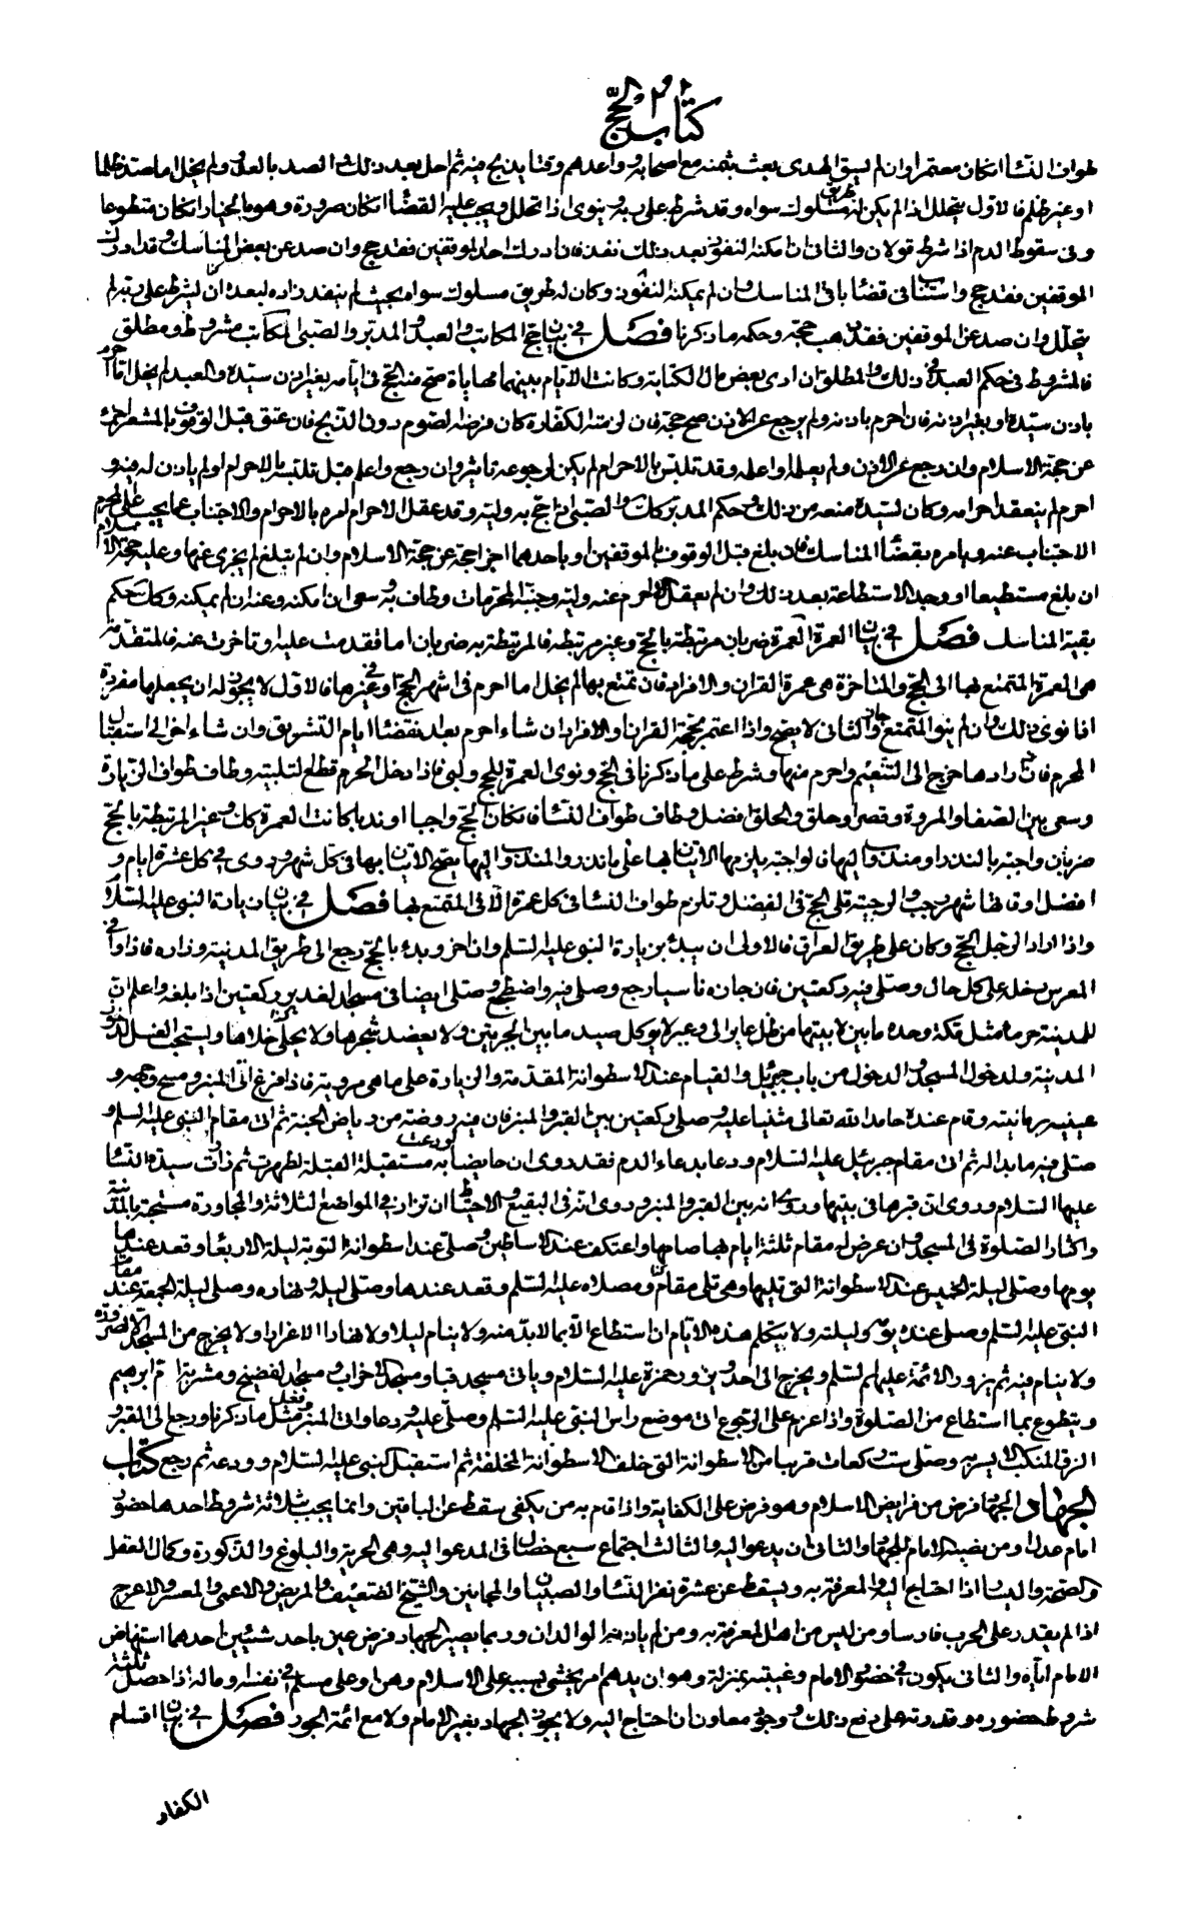 كتاب الحج
طواف النسآ انكان معتمرا وان لم يسق الهدى بعث بثمنه مع اصحابه وواعدهم وقتا يذبح فيه ثم احل بعد ذلك والصد بالعدو ولم يخل اما صد ظلما
او غير ظلم فالاول يتحلل اذا لم يكن له طريق مسلوك سواه وقد شرط على ربه وينوى اذا تحلل ويجب عليه القضآ انكان صرورة وهو بالخيار انكان متطوعا
وفى سقوط الدم اذا شرط قولان والثانى ان امكنه النفوذ بعد ذلك نفذ فان ادرك احد الموقفين فقد حج وان صد عن بعض المناسك وقد ادرك
الموقفين فقد حج واستناب فى قضآ باقى المناسك وان لم يمكنه النفوذ وكان له طريق مسلوك سواه بحيث لم ينفد زاده لبعده او لم يشترط على ربه لم
يتحلل وان صد عن الموقفين فقد ذهب حجته وحكمه ما ذكرنا فصل فى بيان حج المكاتب والعبد والمدبر والصبى المكاتب مشروط ومطلق
فالمشروط فى حكم العبد فى ذلك والمطلق ان ادى بعض مال الكتابة وكانت الايام بينهما مهاياة صح منه الحج فى ايامه بغير اذن سيده والعبد لم يخل اما احرم
باذن سيده او بغير اذنه فان احرم باذنه ولم يرجع عن الاذن صح حجه فان لزمته الكفارة كان فرضه الصوم دون الذبح فان عتق قبل الوقوف بالمشعر اجزأت
عن حجة الاسلام وان رجع عن الاذن ولم يعلم او اعلمه وقد تلبس بالاحرام لم يكن لرجوعه تاثير وان رجع واعلم قبل تلبسه بالاحرام او لم ياذن له فيه و
احرم لم ينعقد احرامه وكان لسيده منعه من ذلك وحكم المدبر كذلك والصبى اذا حج به وليه وقد عقل الاحرام امره بالاحرام والاجتناب عما يجب على المحرم
الاجتناب عنه ويامره بقضآ المناسك فان بلغ قبل الوقوف بالموقفين او باحدهما اجزا حجة عن حجة الاسلام وان لم يبلغ لم يجزى عنها وعليه حجة الاسلام
ان بلغ مستطيعا او وجد الاستطاعة بعد ذلك وان لم يعقل الاحرام احرم عنه وليه وجنبه المحرمات وطاف به وسعى ان امكنه وعنه ان لم يمكنه وكذلك حكم
بقية المناسك فصل فى بيان العمرة العمرة ضربان مرتبطة بالحج وغير مرتبطة فالمرتبطة به ضربان اما تقدمت عليه او تاخرت عنه فالمتقدمة
هى العمرة المتمتع بها الى الحج والمتاخرة هى عمرة القران والافراد فان تمتع بها لم يخل اما احرم فى اشهر الحج او فى غيرها فالاول لا يجوز له ان يجعلها مفردة
اذا نوى ذلك وان لم ينو المتمتع جاز والثانى لا يصح واذا اعتمر بحجة القران والافراد ان شاء احرم بعد انقضآ ايام التشريق وان شاء اخر الى استقبال
المحرم فان ارادها خرج الى التنعيم واحرم منها وشرط على ما ذكرنا فى الحج ونوى العمرة للحج ولبى فاذا دخل الحرم قطع التلبية وطاف طواف الزيارة
وسعى بين الصفا والمروة وقصر او حلق والحلق افضل وطاف طواف النسآ فان كان الحج واجبا او ندبا كانت العمرة كذلك وغير المرتبطة بالحج
ضربان واجبة بالنذر او مندوب اليها فالواجبة يلزمها الاتيان بها على ما نذر والمندوب اليها يصح الاتيان بها فى كل شهر وروى فى كل عشرة ايام و
افضل اوقاتها شهر رجب والرجبية تلى الحج فى الفضل وتلزم طواف النسآ فى كل عمرة الا فى المتمتع بها فصل فى بيان زيارة النبى عليه السلام
واذا اراد الرجل الحج وكان على طريق العراق فالاولى ان يبدء بزيارة النبى عليه السلم وان اخر وبدء بالحج رجع الى طريق المدينة وزاره فاذا وافى
المعرس دخله على كل حال وصلى فيه ركعتين فان جازه ناسيا رجع وصلى فيه واضطجع وصلى ايضا فى مسجد الغدير ركعتين اذا بلغه واعلم ان
للمدينة حرما مثل مكة وحده ما بين لابيتها من ظل عاير الى وعير لا يوكل صيد ما بين الحرمين ولا يعضد شجرها ولا يختلى خلاها ويستحب الغسل لدخول
المدينة ولدخول المسجد والدخول من باب جبرئيل والقيام عند الاسطوانة المقدمة والزيارة على ما هى مروية فاذا فرغ اتى المنبر ومسح وجهه و
عينيه برمانيته وقام عنده حامدا لله تعالى مثنيا عليه وصلى ركعتين بين القبر والمنبر فان فيه روضة من رياض الجنة ثم اتى مقام النبى عليه السلم و
صلى فيه ما بدا له ثم اتى مقام جبرئيل عليه السلام ودعا بدعاء الدم فقد روى ان حايضا لو دعت به مستقبلة القبلة لطهرت ثم زارت سيدة النسآ
عليها السلام وروى ان قبرها فى بيتها وروى انه بين القبر والمنبر وروى انه فى البقيع والاحتياط ان تزار فى المواضع الثلاثة والمجاورة مستحبة بالمدينة
واكثار الصلوة فى المسجد وان عرض له مقام ثلثة ايام بها صامها واعتكف عند الاساطين وصلى عند اسطوانة التوبة ليلة الاربعآ وقعد عندها
يومها وصلى ليلة الخميس عند الاسطوانة التى تليها وهى تلى مقامه ومصلاه عليه السلم وقعد عندها وصلى ليله ونهاره وصلى ليلة الجمعة عند مقام
النبى عليه السلم وصلى عنده يومه وليلته ولا يتكلم هذه الايام ان استطاع الا بما لا بد منه ولا ينام ليلا ولا نهارا الا غرارا ولا يخرج من المسجد الا لضرورة
ولا ينام فيه ثم يزور الائمة عليهم السلم ويخرج الى احد ويزور حمزة عليه السلام وياتى مسجد قبا ومسجد الاحزاب ومسجد الفضيخ ومشربة ام ابرهيم
ويتطوع بما استطاع من الصلوة واذا عزم على الرجوع اتى موضع راس النبى عليه السلم وصلى عليه ودعا واتى المنبر وفعل مثل ما ذكرنا ورجع الى القبر و
الزق المنكب الايسر به وصلى ست ركعات قريبا من الاسطوانة التى خلف الاسطوانة المخلقة ثم استقبل النبى عليه السلام وودعه ثم رجع كتاب
الجهاد الجهاد فرض من فرايض الاسلام وهو فرض على الكفاية واذا قام به من يكفى سقط عن الباقين وانما يجب بثلاثة شروط احدها حضور
امام عدل او من نصبه الامام للجهاد والثانى ان يدعو اليه والثالث اجتماع سبع خصال فى المدعو اليه وهى الحرية والبلوغ والذكورة وكمال العقل
والصحة واليسار اذا احتاج اليه والمعرفة به ويسقط عن عشرة نفر النسآ والصبيان والمجانين والشيخ الضعيف والمريض والاعمى والمعسر والاعرج
اذا لم يقدر على الحرب فارسا ومن ليس من اهل المعرفة به ومن لم ياذن له الوالدان وربما يصير الجهاد فرض عين باحد شيئين احدهما استنهاض
الامام اياه والثانى يكون فى حضور الامام وغيبته بمنزلة وهو ان يدهم امر يخشى بسببه على الاسلام وهن او على مسلم فى نفسه وماله اذا حصل ثلثة
شروط حضوره وقدرته على دفع ذلك ووجود معاون ان احتاج اليه ولا يجوز الجهاد بغير الامام ولا مع ائمة الجور فصل فى بيان اقسام
الكفار